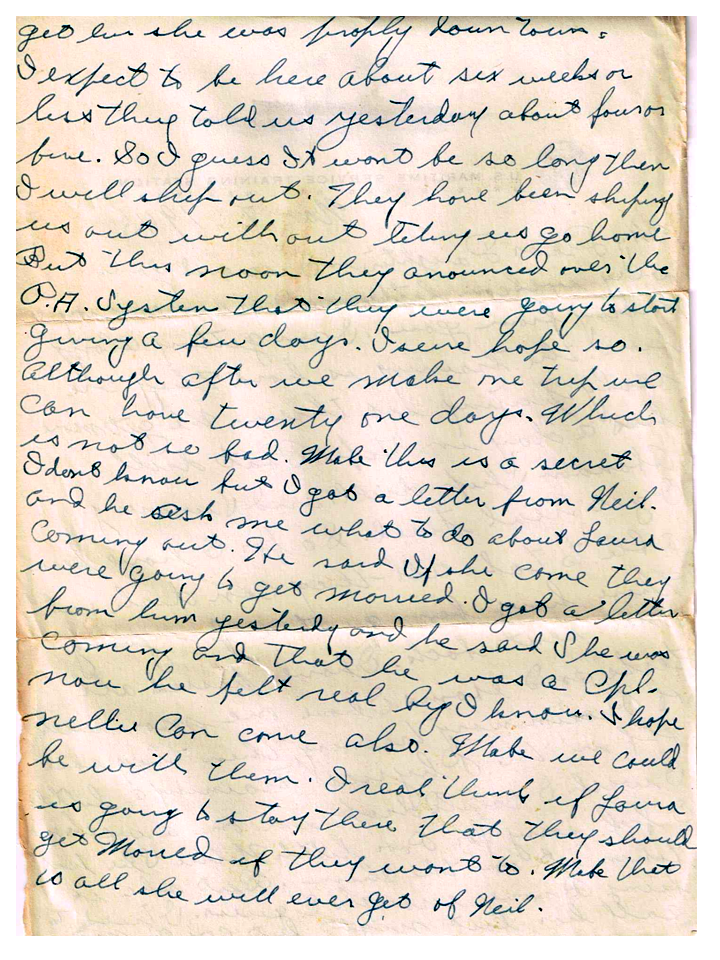 get her she was proply down town.
I expect to be here about six weeks or
less they told us yesterday about four or
five. So I guess It wont be so long then
I will ship out. They have been shiping
us out with out leting us go home
But this noon they anounced over the
P.A. System that they were going to start
giving a few days. I sure hope so.
Although after we make one trip we
can have twenty one days. Which
is not so bad. Mabe this is a secret
I dont know but I got a letter from Neil.
and he ask me what to do about Laura
coming out. He said If she come they
were going to get married. I got a letter
from him yesterdy and he said She was
coming and that he was a Cpl.
now he felt real big I know. I hope
nellie Can come also. Mabe we could
be with them. I real think if Laura
is going to stay there that they should
get Maried if they want to. Mabe that
is all she will ever get of Neil.